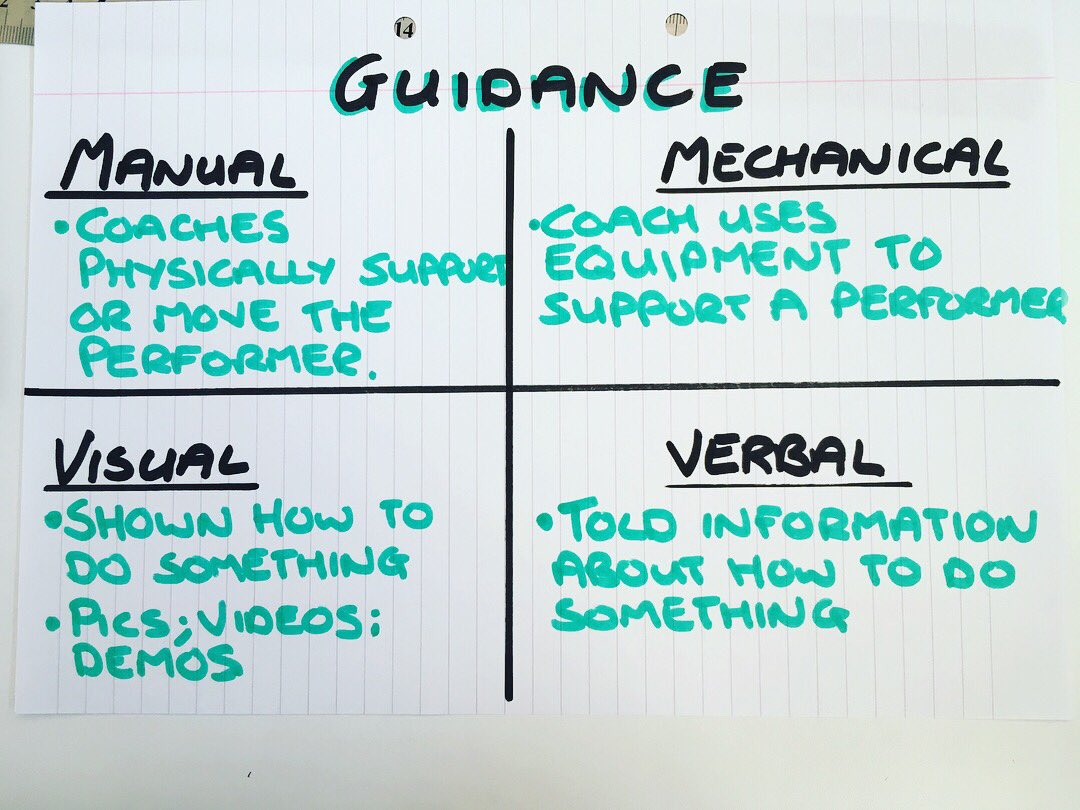 14
GUIDANCE
MANUAL
•COACHES
PHYSICALLY SUPPORT
OR MOVE THE
PERFORMER.
MECHANICAL
•COACH USES
EQUIPMENT TO
SUPPORT A PERFORMER
VISUAL
•SHOWN HOW TO
DO SOMETHING
•PICS; VIDEOS;
DEMOS
VERBAL
•TOLD INFORMATION
ABOUT HOW TO DO
SOMETHING